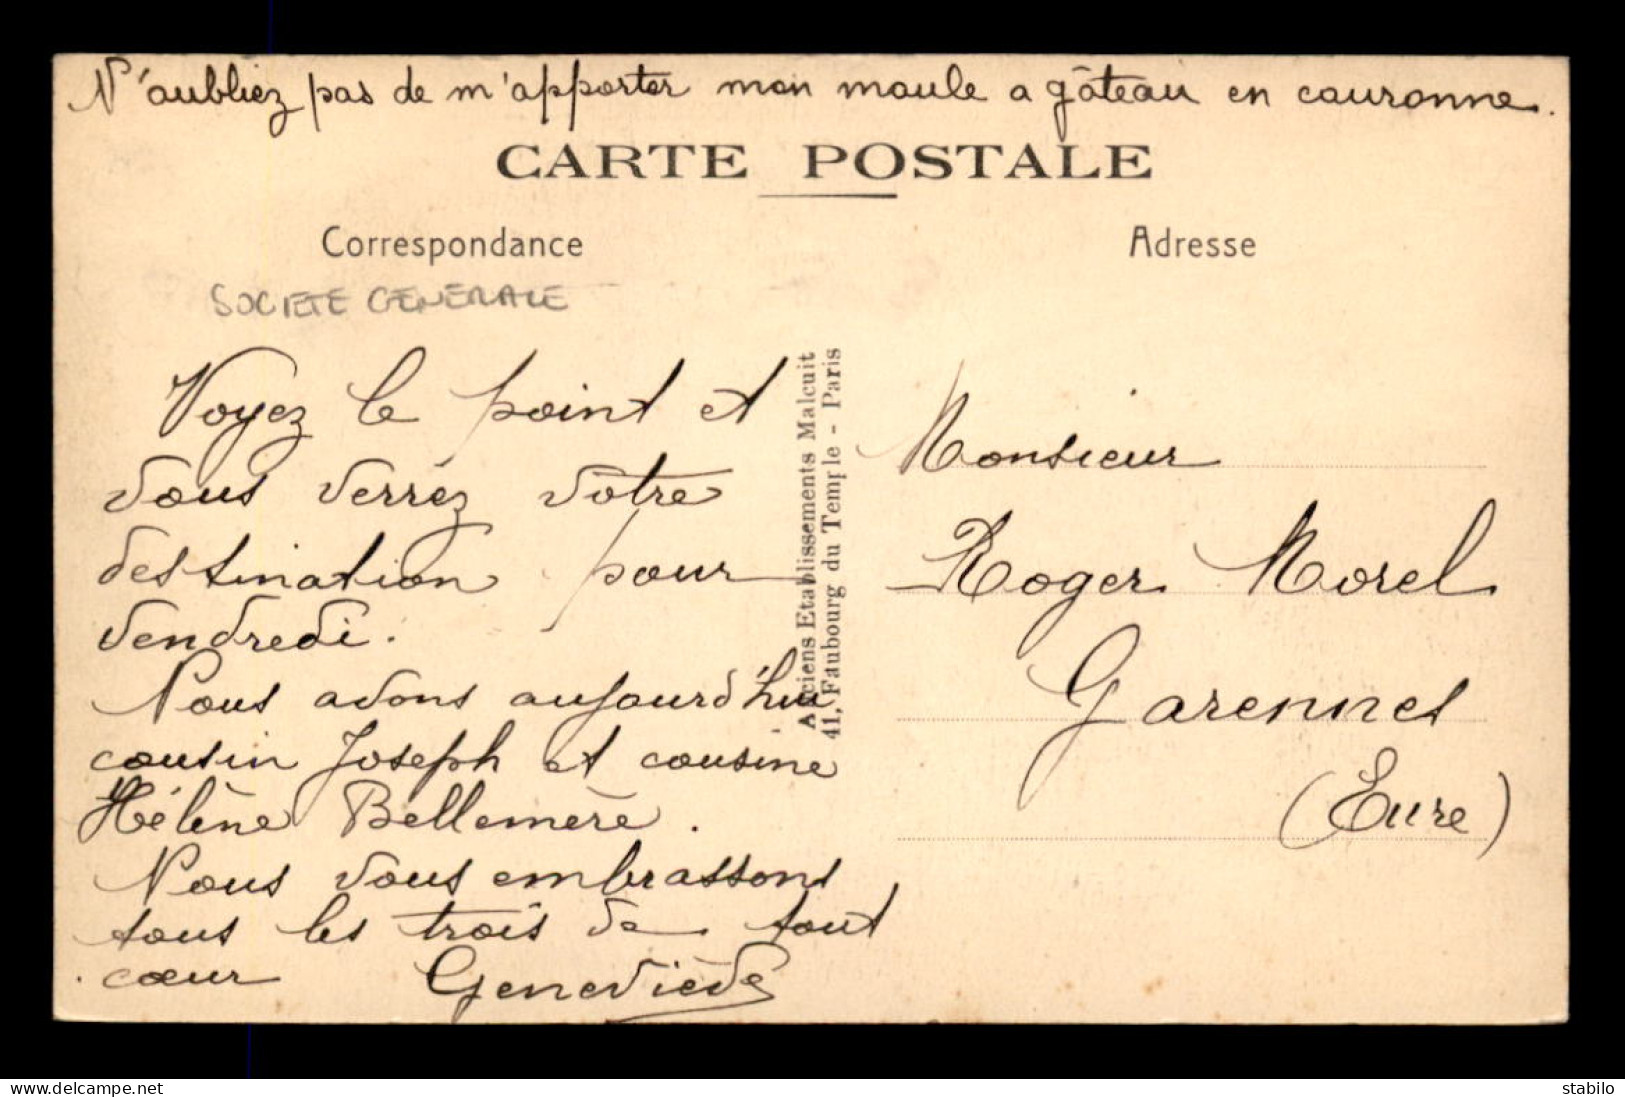 N'oubliez pas de m'apporter mon moule a gâteau en couronne.
CARTE POSTALE
Correspondance
Adresse
SOCIETE GENERALE
Voyez le point et
vous verrez votre
destination pour
vendredi.
Nous avons aujourd'hui
cousin Joseph et cousine
Hélène Bellemère.
Nous vous embrassons
tous les trois de tout
cœur Geneviève
Anciens Etablissements Malcuit
41, Faubourg du Temple - Paris
Monsieur
Roger Morel
Garennes
(Eure)
delcampe.net
stabilo